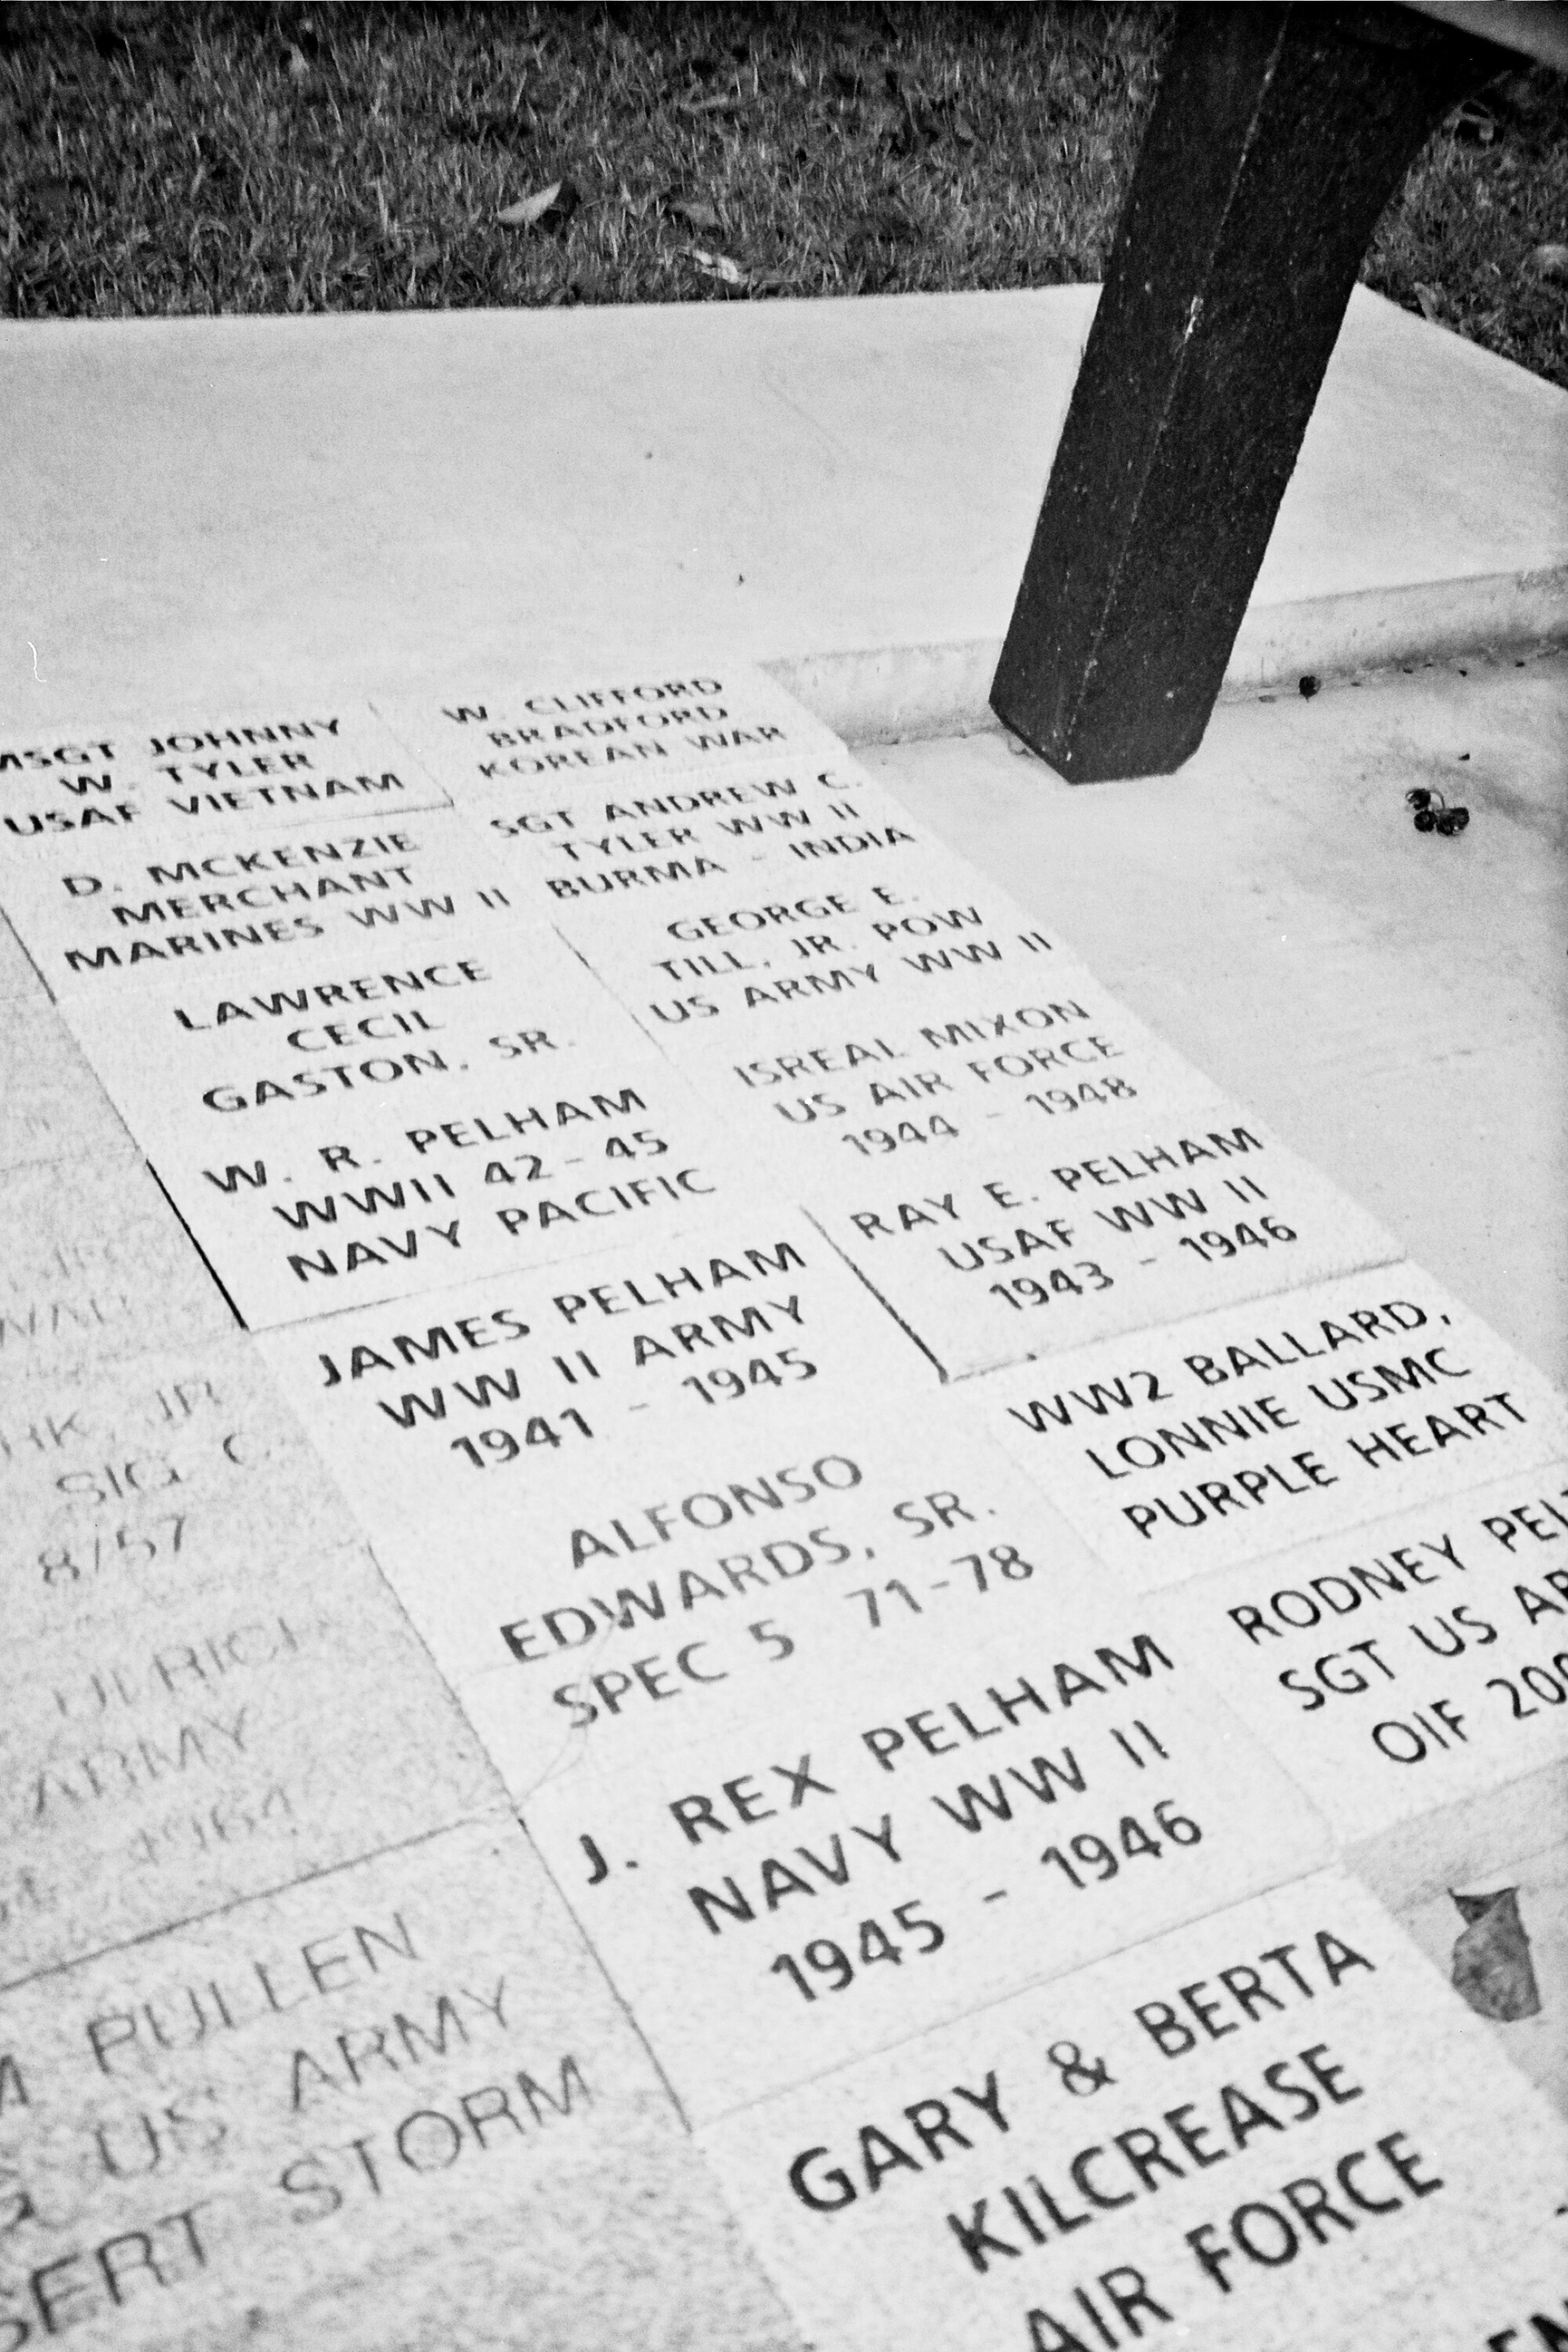 MSGT JOHNNY
W. TYLER
USAF VIETNAM
W. CLIFFORD
BRADFORD
KOREAN WAR
D. MCKENZIE
MERCHANT
MARINES WW II
SGT ANDREW C.
TYLER WW II
BURMA - INDIA
LAWRENCE
CECIL
GASTON, SR.
GEORGE E.
TILL, JR. POW
US ARMY WW II
W. R. PELHAM
WWII 42-45
NAVY PACIFIC
ISREAL MIXON
US AIR FORCE
1944 - 1948
JAMES PELHAM
WW II ARMY
1941 - 1945
RAY E. PELHAM
USAF WW II
1943 - 1946
ALFONSO
EDWARDS, SR.
SPEC 5 71-78
WW2 BALLARD,
LONNIE USMC
PURPLE HEART
J. REX PELHAM
NAVY WW II
1945 - 1946
RODNEY
SGT US
OIF
GARY & BERTA
KILCREASE
AIR FORCE
JR
SIG C
8/57
ARMY
1964
PULLEN
US ARMY
STORM